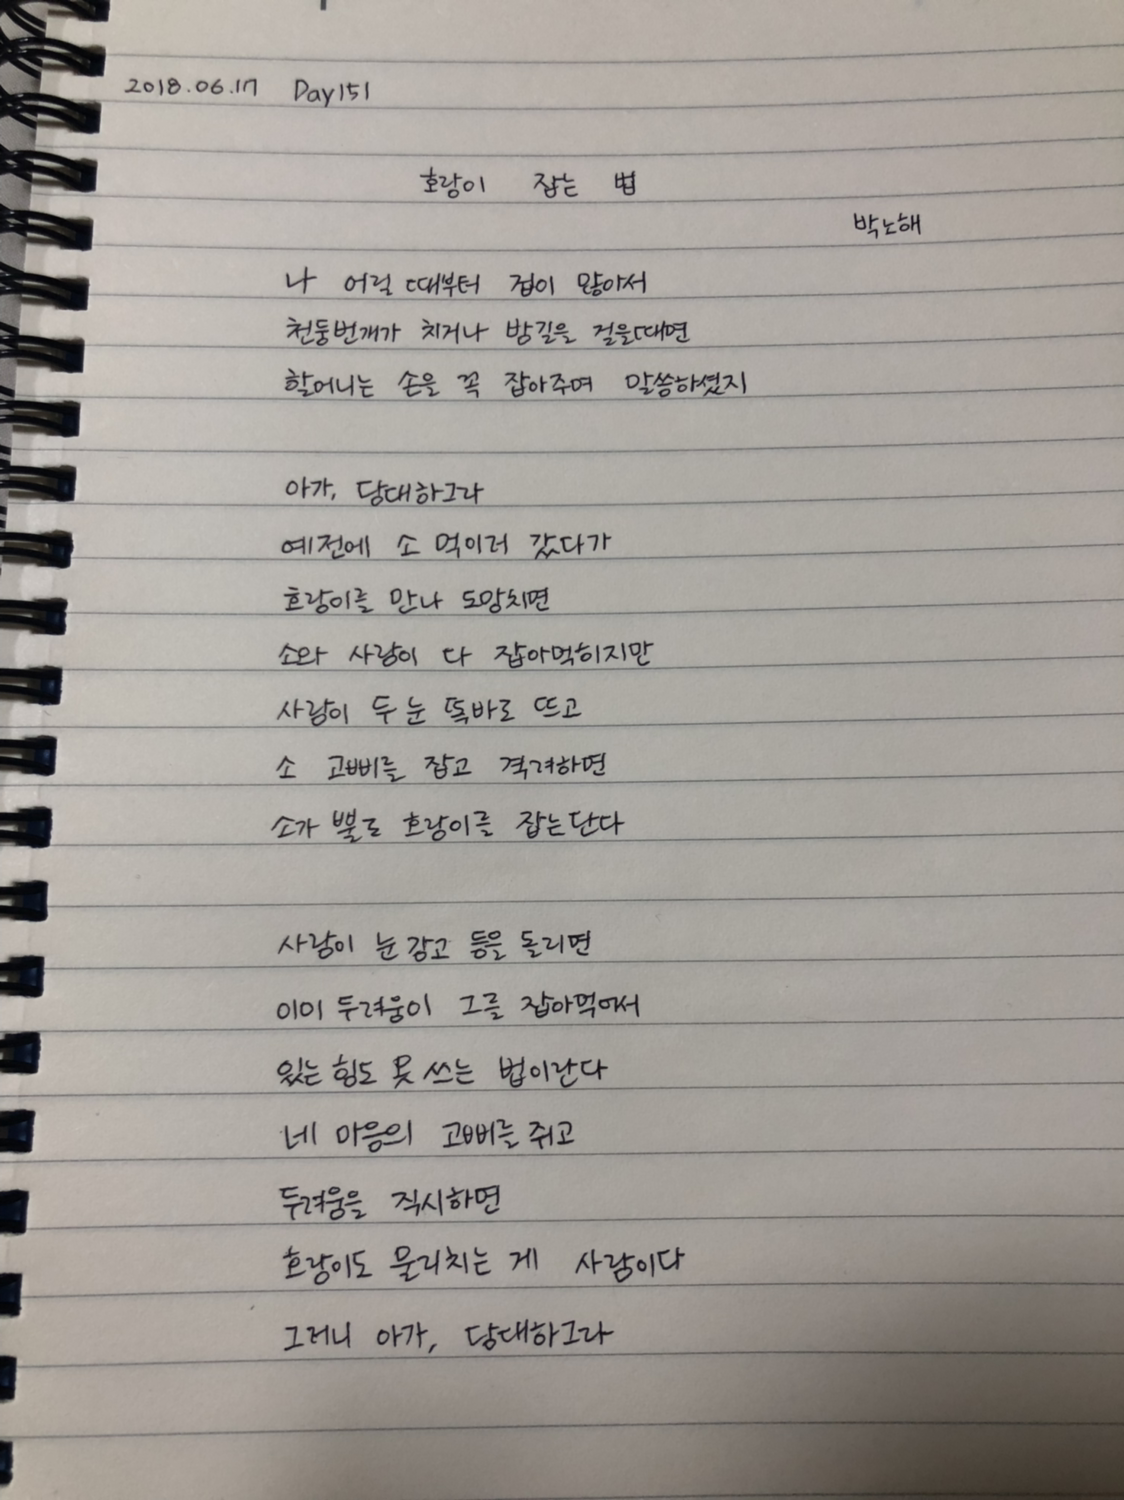 2018.06.17 Day151
호랑이 잡는 법
박노해
나 어릴 때부터 겁이 많아서
천둥번개가 치거나 밤길을 걸을때면
할머니는 손을 꼭 잡아주며 말씀하셨지
아가, 담대하그라
예전에 소 먹이러 갔다가
호랑이를 만나 도망치면
소와 사람이 다 잡아먹히지만
사람이 두 눈 똑바로 뜨고
소 고삐를 잡고 격려하면
소가 뿔로 호랑이를 잡는단다
사람이 눈 감고 등을 돌리면
이미 두려움이 그를 잡아먹어서
있는 힘도 못 쓰는 법이란다
네 마음의 고삐를 쥐고
두려움을 직시하면
호랑이도 물리치는 게 사람이다
그러니 아가, 담대하그라